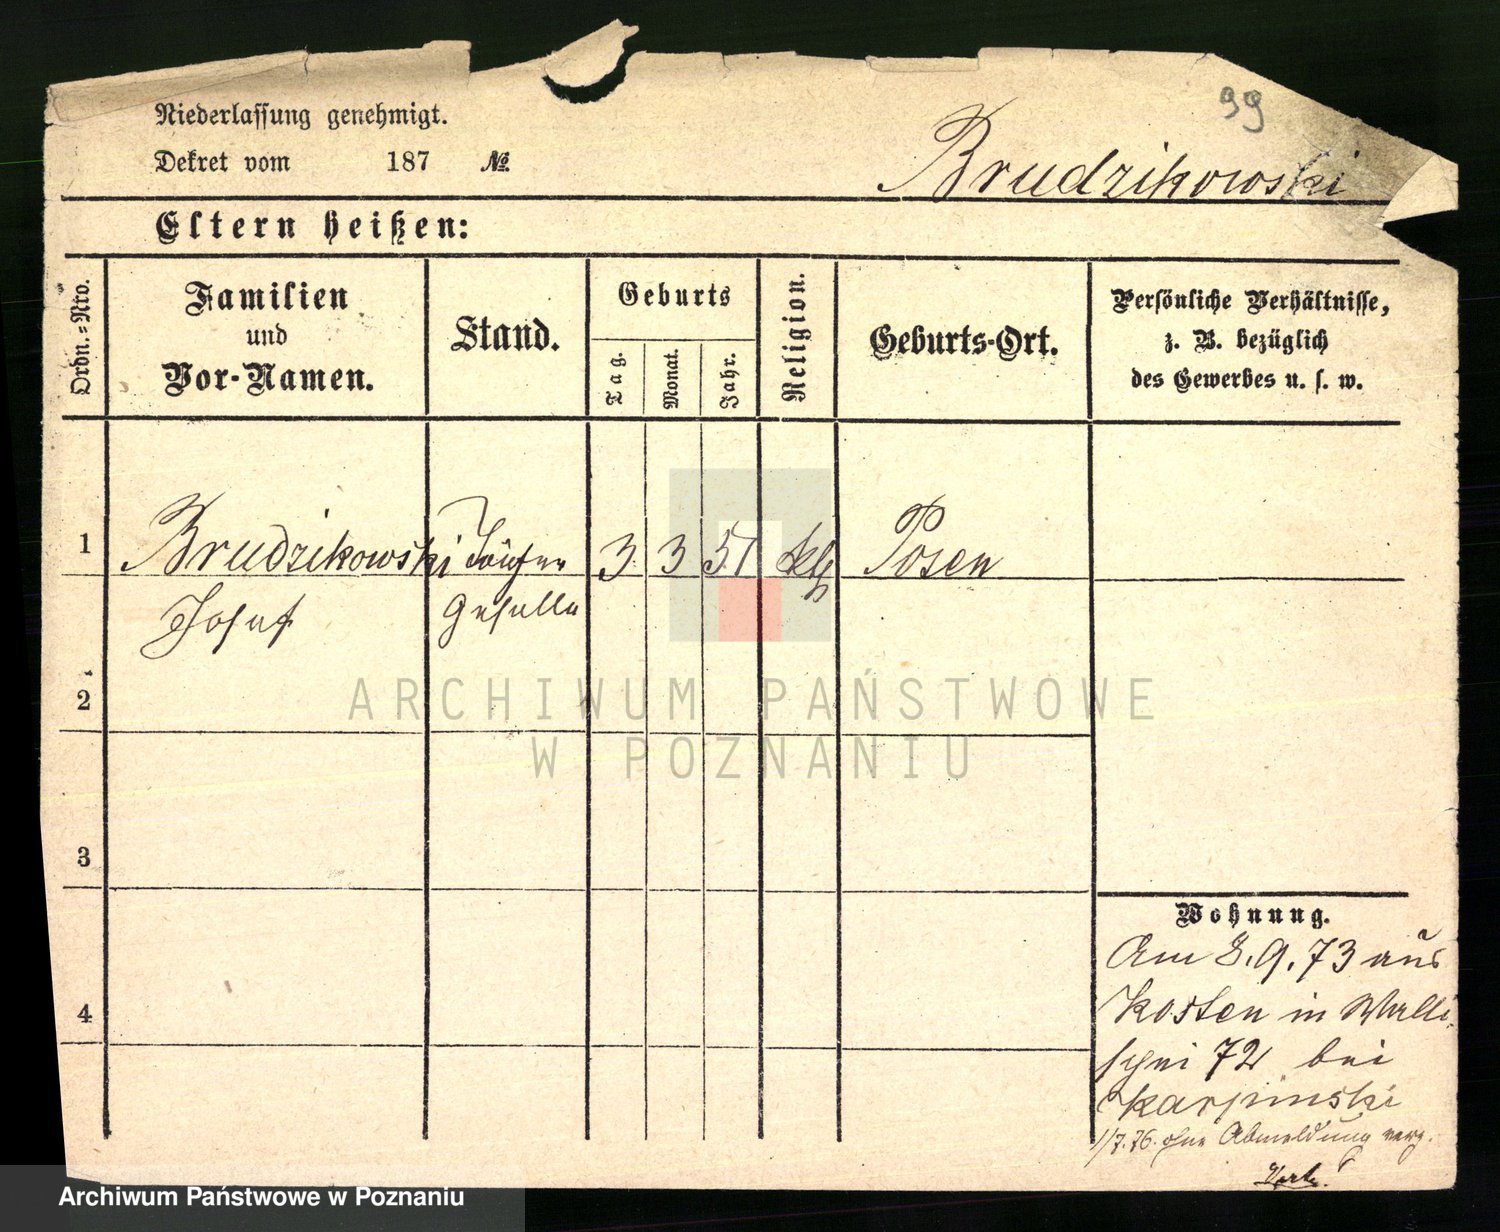 99
Niederlassung genehmigt.
Dekret vom 187 No.
Brudzikowski
Eltern heißen:
Ordn.-Nro.
Familien
und
Vor-Namen.
Stand.
Geburts
Tag.
Monat.
Jahr.
Religion.
Geburts-Ort.
Persönliche Verhältnisse,
z. B. bezüglich
des Gewerbes u. s. w.
1 Brudzikowski 3 3 51 kth Posen
Josef Geselle
2
3
4
Wohnung.
Am 8.9.73 aus
Kosten in Walli-
schei 72 bei
Karpinski
1/7.76. ohne Abmeldung verz.
ARCHIWUM PAŃSTWOWE
W POZNANIU
Archiwum Państwowe w Poznaniu